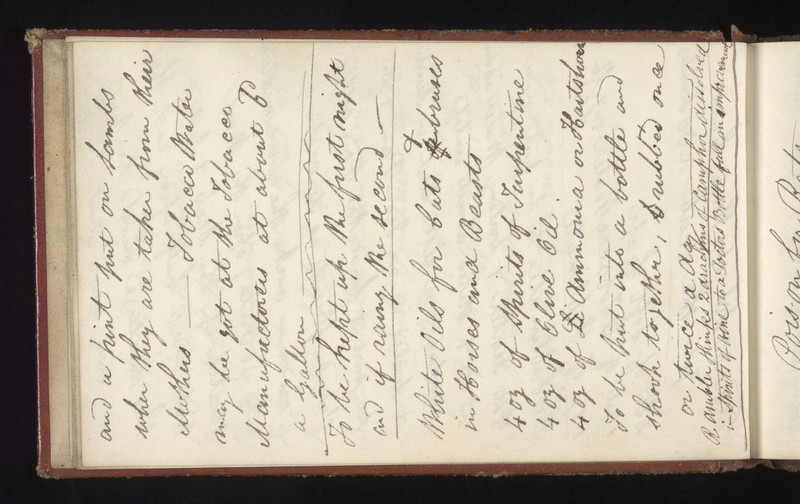 and a pint put on Lambs
when they are taken from their
Mothers — Tobacco Water
may be got at the Tobacco
Manufactores at about
a Gallon
To be kept up the first night
and if rainy the second —
White Oils for Cuts & bruses
in Horses and Beasts
4 oz of Spirits of Turpentine
4 oz of Olive Oil.
4 oz of Ammonia or Hartshorn
To be put into a bottle and
shook together, & rubbed once
or twice a day
R. Ambler thinks 2 drachms of Camphor dissolved
in Spirits of Wine to a Doctors bottle full an improvement
Poison for Rats